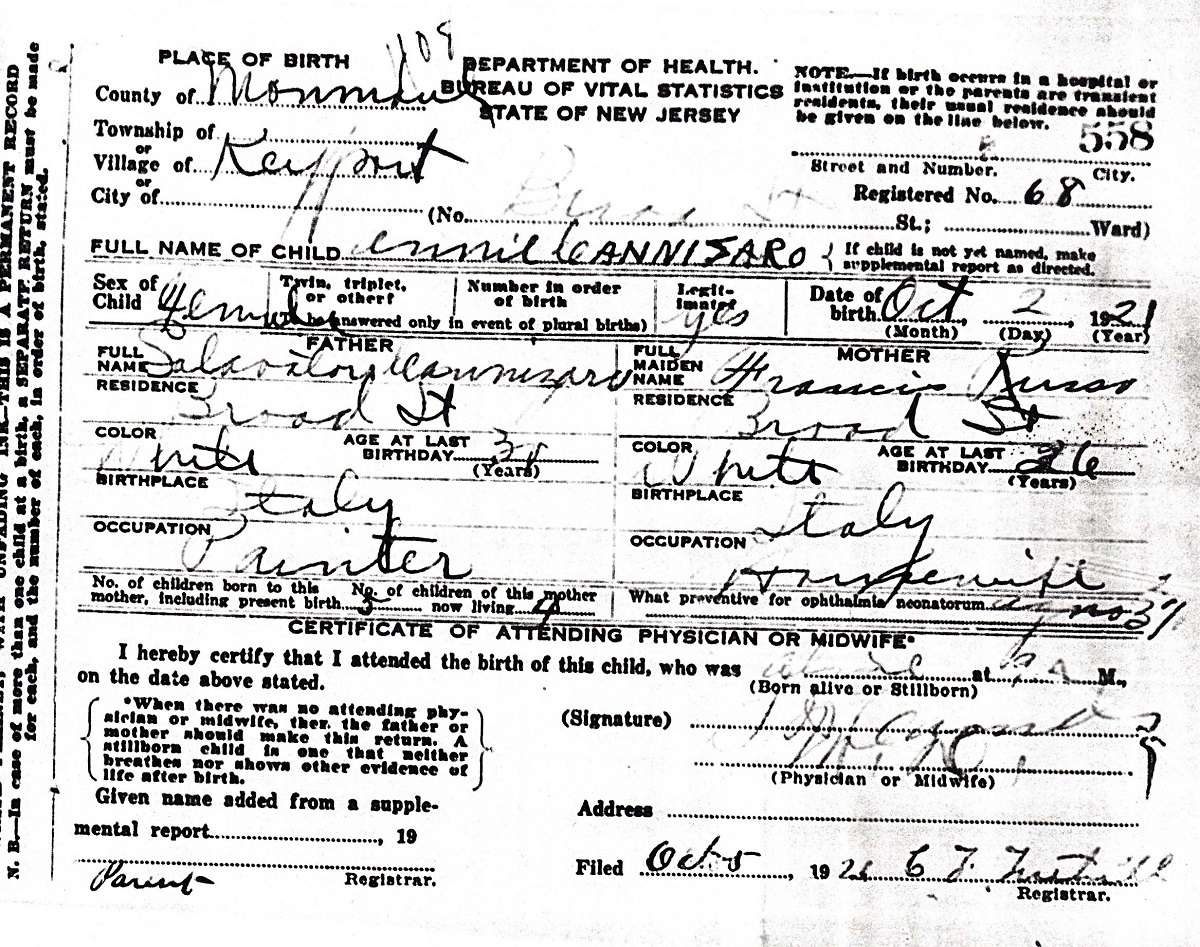 N. B.—In case of more than one child at a birth, a SEPARATE RETURN must be made
for each, and the number of each, in order of birth, stated.
UNFADING INK—THIS IS A PERMANENT RECORD
1109
PLACE OF BIRTH
County of Monmouth
Township of
or
Village of Keyport
or
City of
DEPARTMENT OF HEALTH.
BUREAU OF VITAL STATISTICS
STATE OF NEW JERSEY
NOTE.—If birth occurs in a hospital or
institution or the parents are transient
residents, their usual residence should
be given on the line below.
558
Street and Number. City.
Registered No. 68
(No. Broad St St.; Ward)
FULL NAME OF CHILD Annie CANNISARO { If child is not yet named, make
supplemental report as directed.
Sex of
Child Female
Twin, triplet,
or other?
Number in order
of birth
(To be answered only in event of plural births)
Legit-
imate? yes
Date of
birth. Oct, 2 1921
(Month) (Day) (Year)
FATHER
FULL
NAME Salavatore Cannizaro
RESIDENCE
Broad St
COLOR
White
AGE AT LAST
BIRTHDAY
(Years)
BIRTHPLACE
Italy
OCCUPATION
Painter
MOTHER
FULL
MAIDEN
NAME Francis Russo
RESIDENCE
Broad St
COLOR
White
AGE AT LAST
BIRTHDAY 26
(Years)
BIRTHPLACE
Italy
OCCUPATION
Housewife
No. of children born to this
mother, including present birth 5
No. of children of this mother
now living 4
What preventive for ophthalmia neonatorum
CERTIFICATE OF ATTENDING PHYSICIAN OR MIDWIFE*
I hereby certify that I attended the birth of this child, who was alive at 6 A M.,
(Born alive or Stillborn)
on the date above stated.
*When there was no attending phy-
sician or midwife, then the father or
mother should make this return. A
stillborn child is one that neither
breathes nor shows other evidence of
life after birth.
(Signature)
M. D.
(Physician or Midwife)
Given name added from a supple-
mental report , 19
Address
Parent Registrar.
Filed Oct 5, 1921 C T
Registrar.